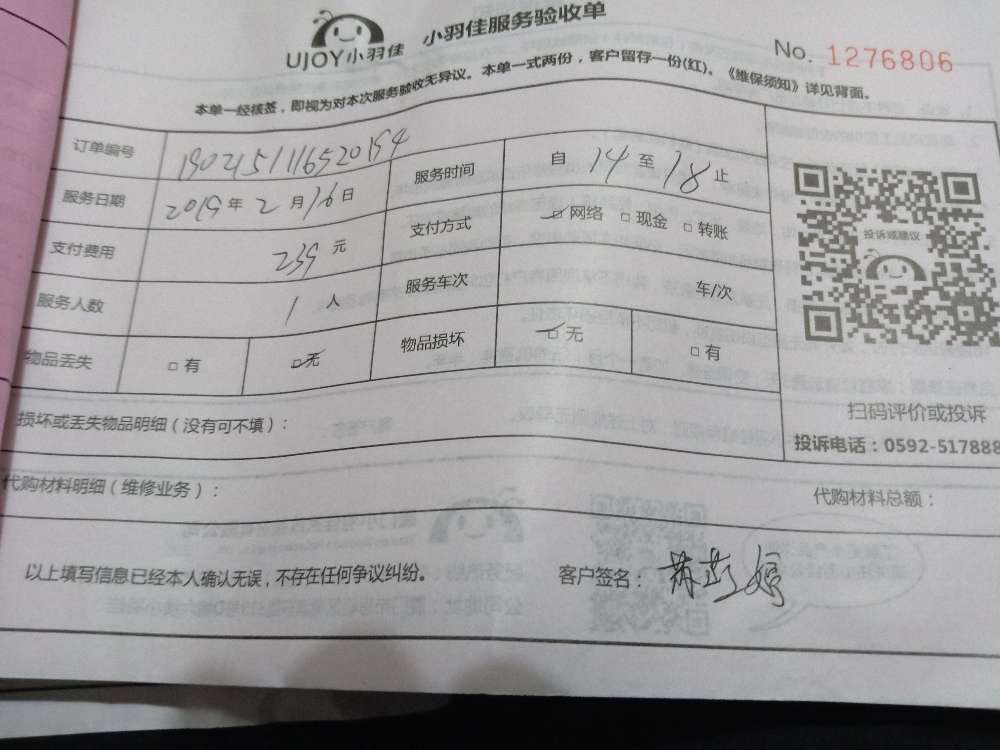 UJOY小羽佳 小羽佳服务验收单
No. 1276806
本单一经核签，即视为对本次服务验收无异议。本单一式两份，客户留存一份(红)。《维保须知》详见背面。
订单编号 1902151116520194 服务时间 自 14 至 18 止
服务日期 2019 年 2 月 16 日 支付方式 □ 网络 □ 现金 □ 转账
投诉或建议
支付费用 239 元 服务车次 车/次
服务人数 1 人 物品损坏 □ 无 □ 有
物品丢失 □ 有 □ 无
扫码评价或投诉
损坏或丢失物品明细（没有可不填）：
投诉电话：0592-517888
代购材料明细（维修业务）： 代购材料总额：
以上填写信息已经本人确认无误，不存在任何争议纠纷。 客户签名：